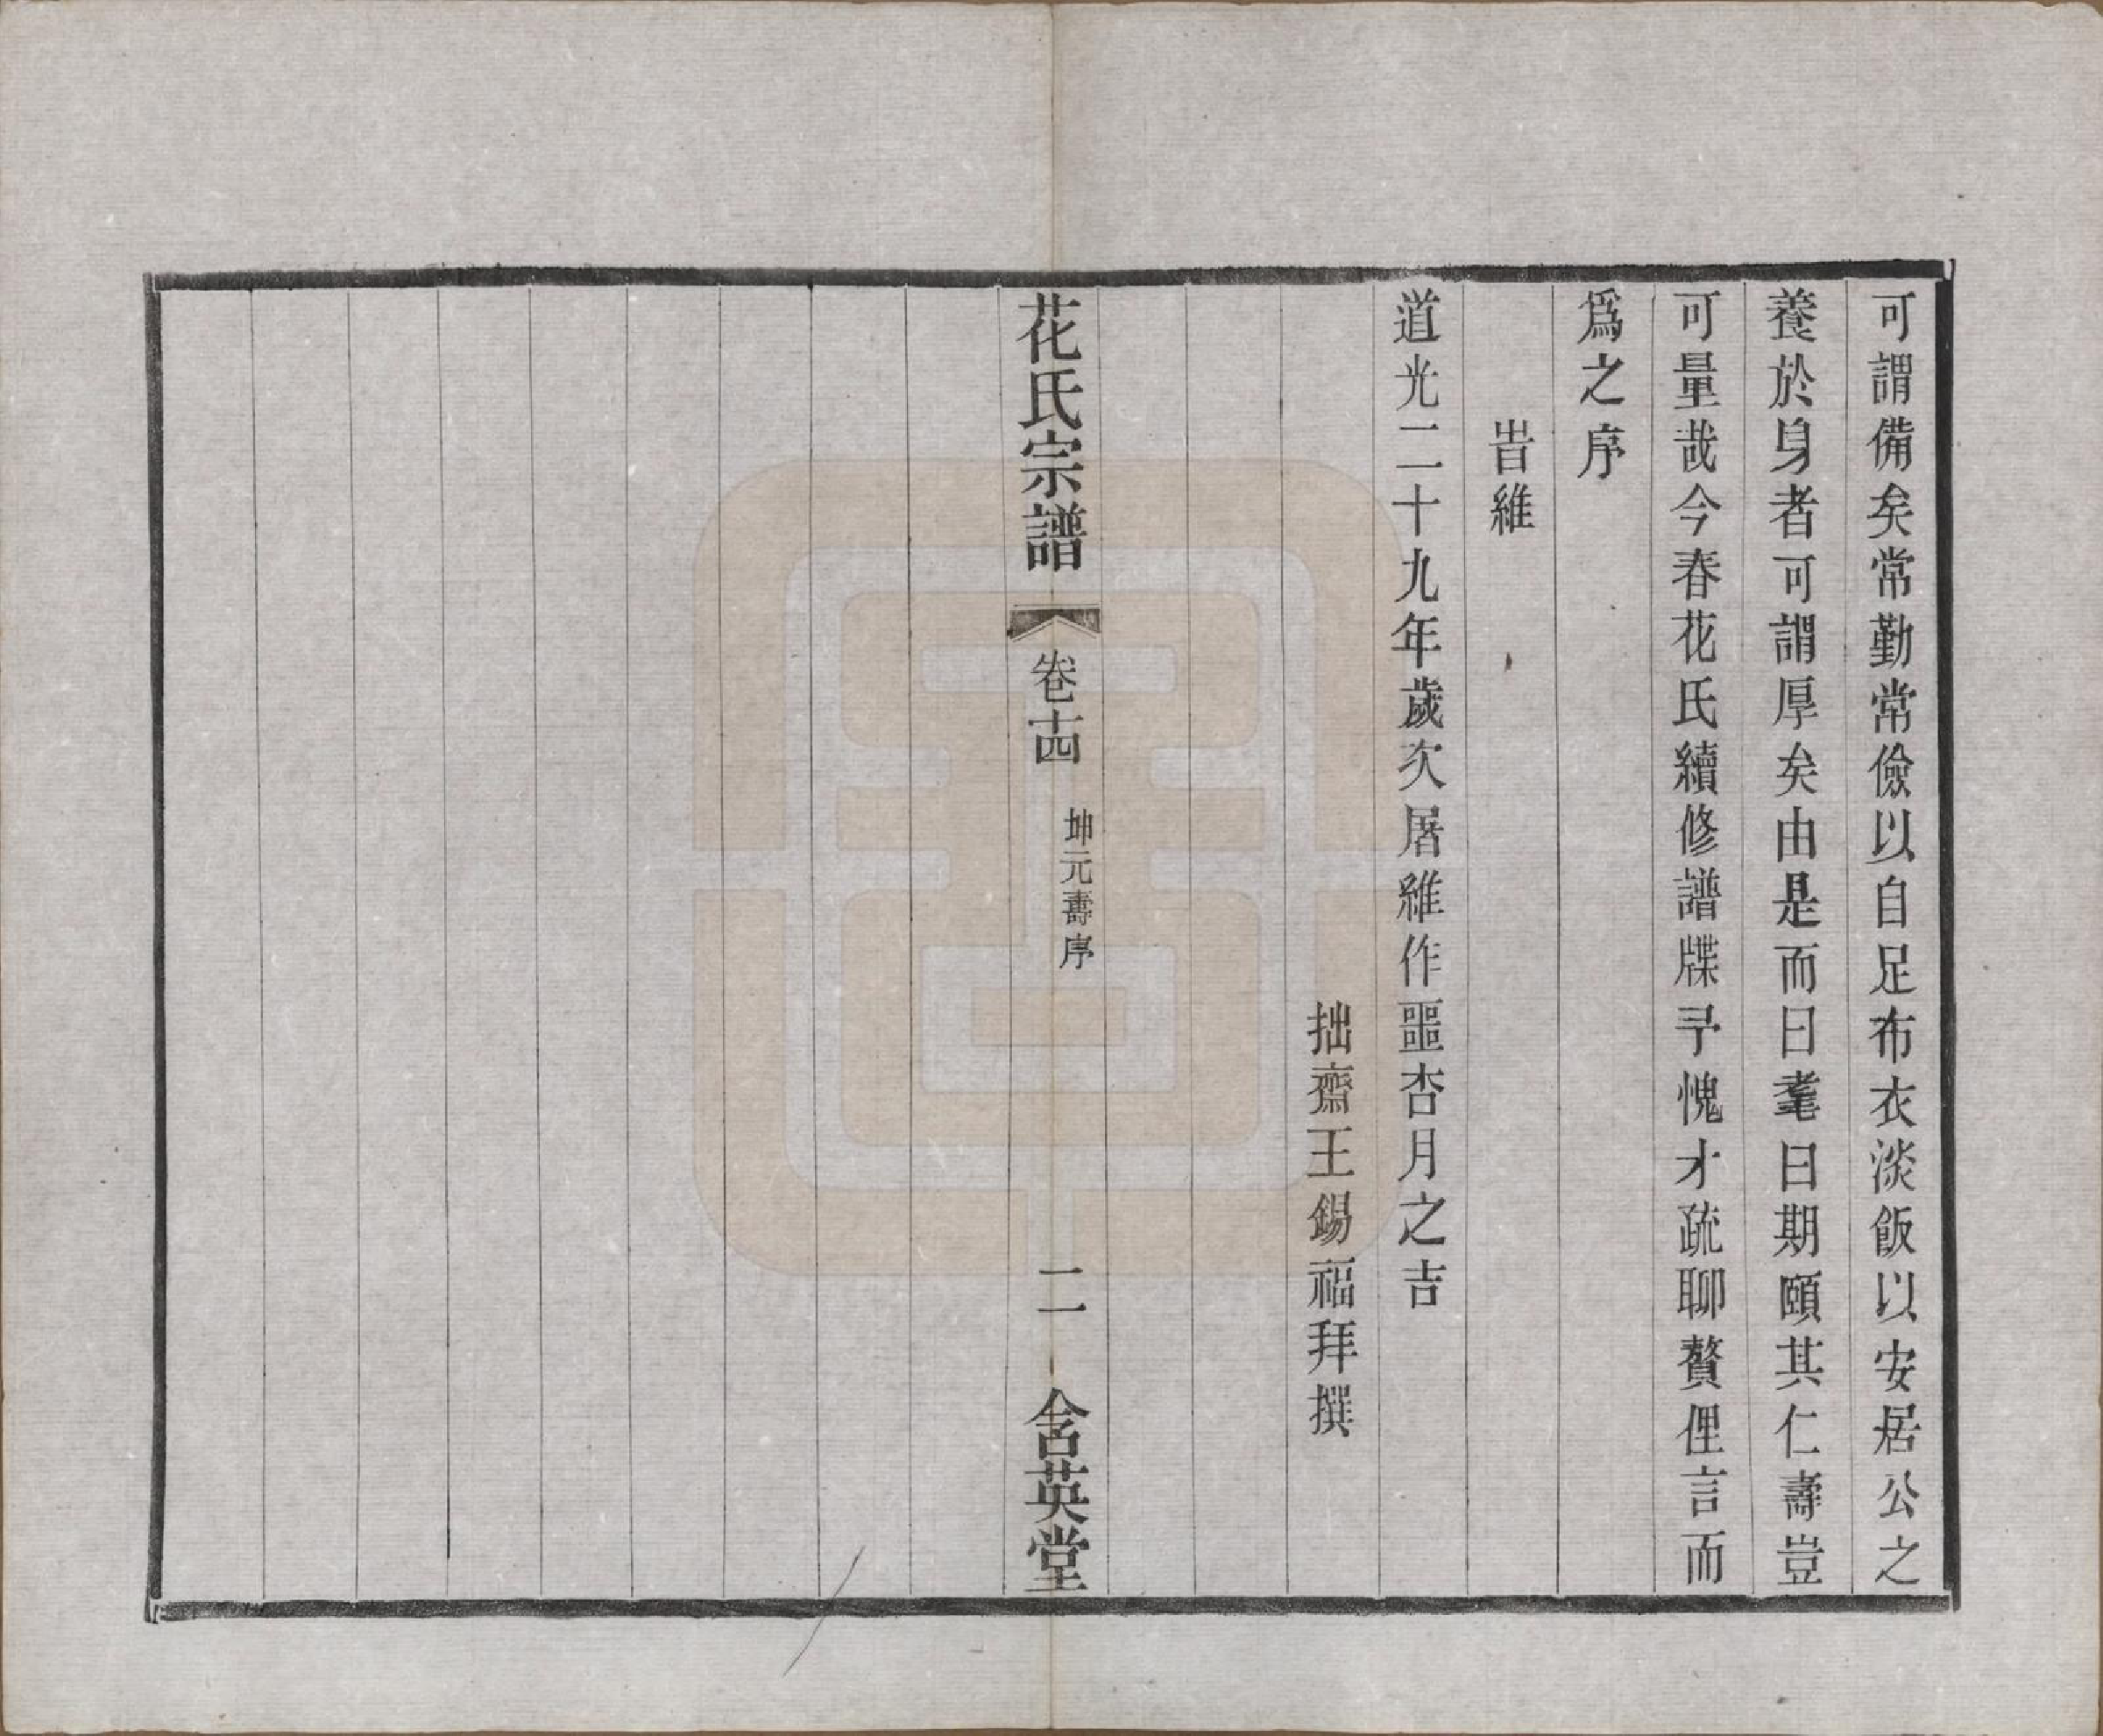 可謂備矣常勤常儉以自足布衣淡飯以安居公之
養於身者可謂厚矣由是而曰耄曰期頤其仁壽豈
可量哉今春花氏續修譜牒予愧才疏聊贅俚言而
爲之序
旹維
道光二十九年歲次屠維作噩杏月之吉
拙齋王錫福拜撰
花氏宗譜
卷十四
坤元壽序
二
含英堂